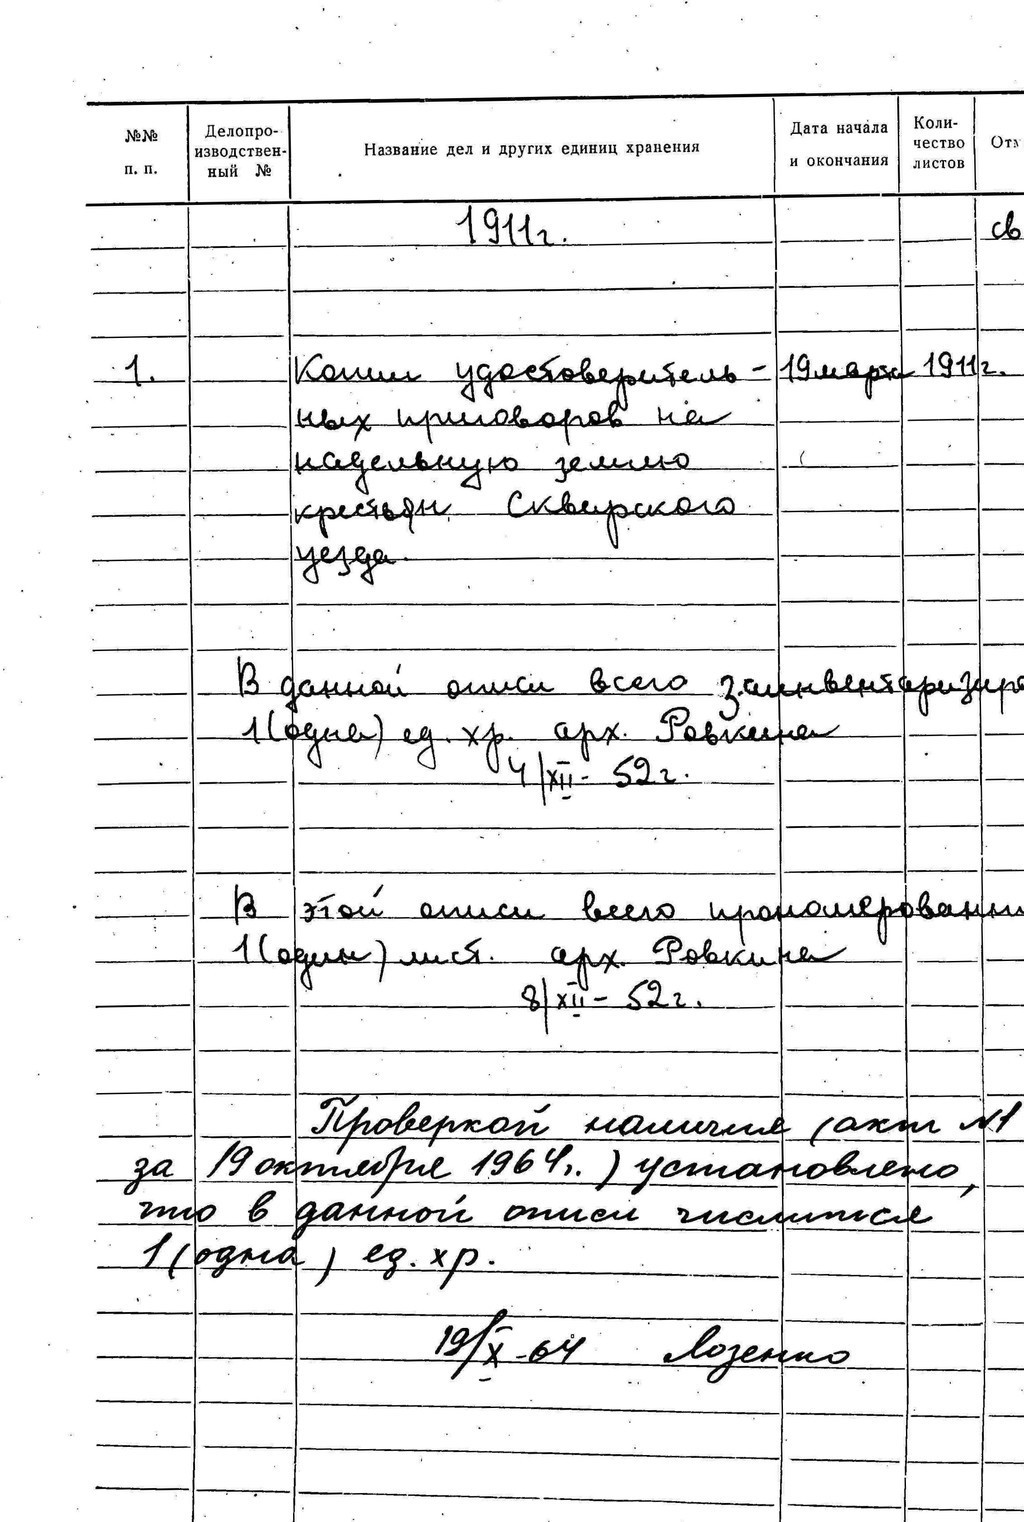 №№ п. п.
Делопро-
изводствен-
ный №
Название дел и других единиц хранения
Дата начала
и окончания
Коли-
чество
листов
От
1911г.
св
1. Копии удостоверитель- 19 марта 1911г.
ных приговоров на
надельную землю
крестьян Сквирского
уезда.
В данной описи всего заинвентаризиро
1 (одна) ед. хр. арх. Ровкина
4/XII - 52г.
В этой описи всего прономерованн
1 (один) лист. арх. Ровкина
8/XII - 52г.
Проверкой наличия (акт №1
за 19 октября 1964г.) установлено,
что в данной описи числится
1 (одна) ед. хр.
19/X - 64 Лозенко